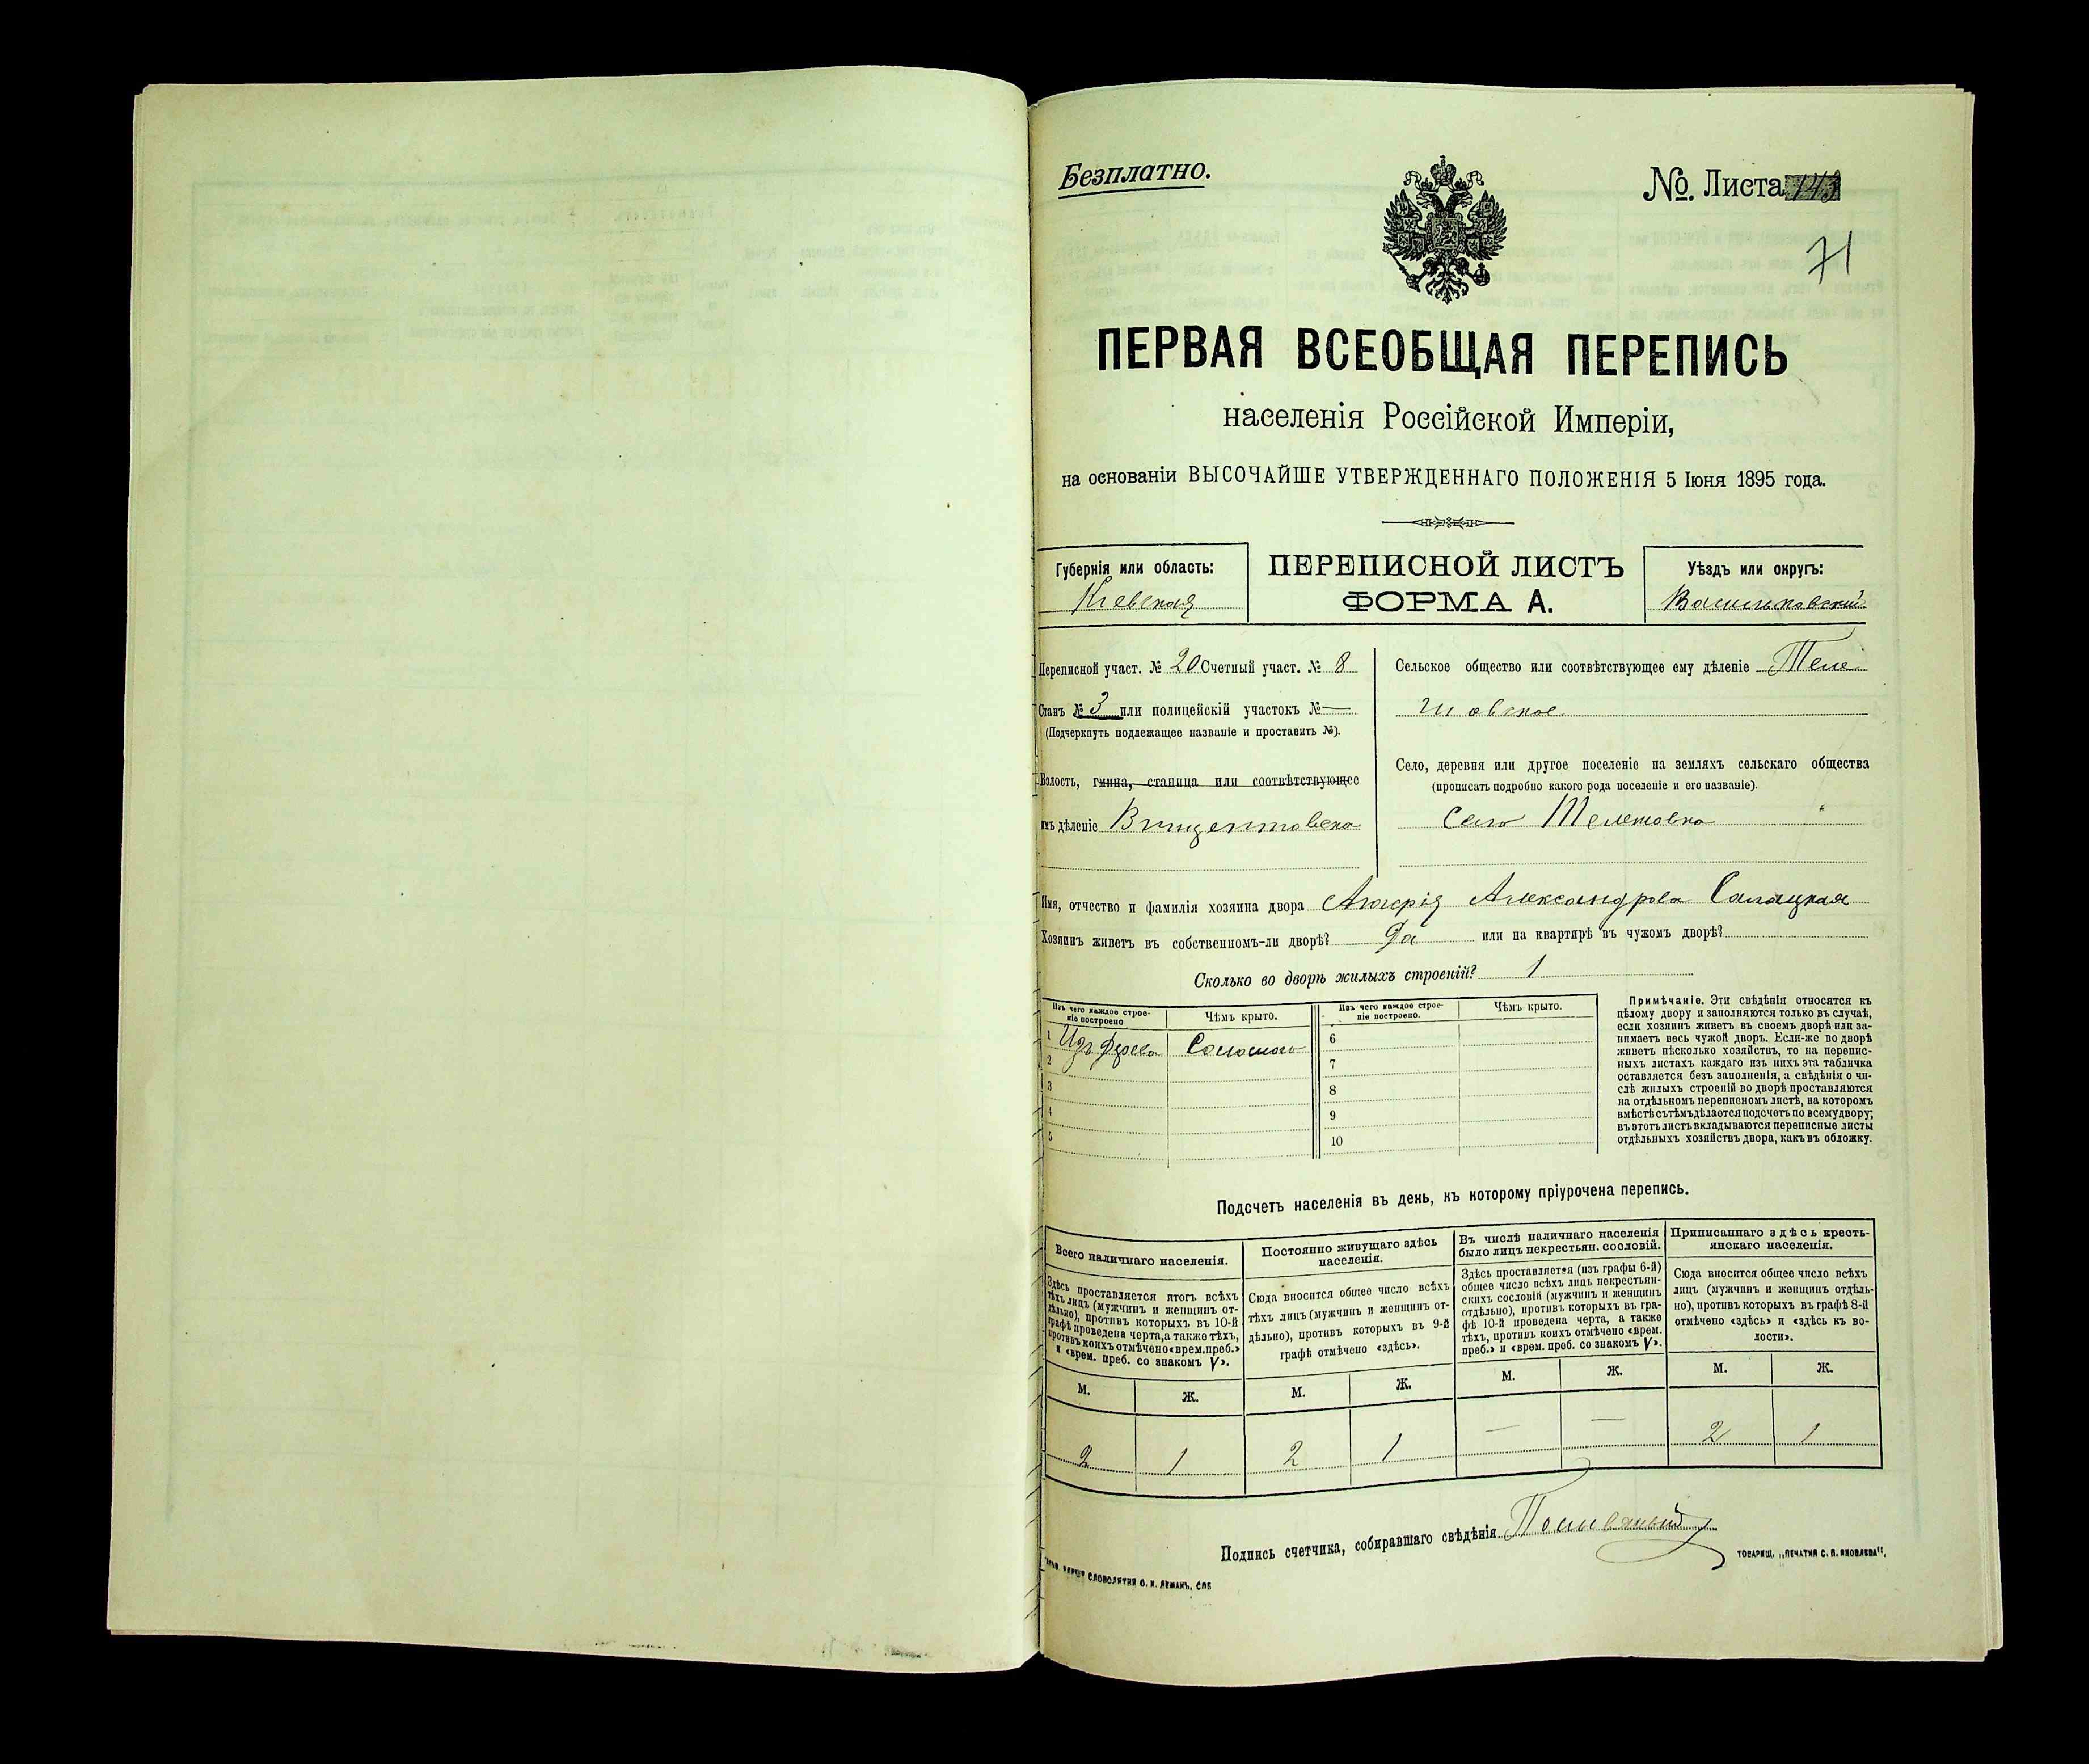 Безплатно.
№. Листа 143
71
ПЕРВАЯ ВСЕОБЩАЯ ПЕРЕПИСЬ
населенія Россійской Имперіи,
на основаніи ВЫСОЧАЙШЕ УТВЕРЖДЕННАГО ПОЛОЖЕНІЯ 5 Іюня 1895 года.
Губернія или область:
Кіевская
ПЕРЕПИСНОЙ ЛИСТЪ
ФОРМА А.
Уѣздъ или округъ:
Васильковскій
Переписной участ. № 20 Счетный участ. № 8
Станъ № 3 или полицейскій участокъ № —
(Подчеркнуть подлежащее названіе и проставить №).
Волость, гмина, станица или соотвѣтствующее
имъ дѣленіе Винцентовска
Сельское общество или соотвѣтствующее ему дѣленіе Теле
шовское
Село, деревня или другое поселеніе на земляхъ сельскаго общества
(прописать подробно какого рода поселеніе и его названіе).
Село Телешовка
Имя, отчество и фамилія хозяина двора Александрова
Хозяинъ живетъ въ собственномъ-ли дворѣ? Да или на квартирѣ въ чужомъ дворѣ?
Сколько во дворѣ жилыхъ строеній? 1
Изъ чего каждое строе-
ніе построено
Чѣмъ крыто.
Изъ чего каждое строе-
ніе построено.
Чѣмъ крыто.
1 Изъ дерева Соломою
2
3
4
5
6
7
8
9
10
Примѣчаніе. Эти свѣдѣнія относятся къ
цѣлому двору и заполняются только въ случаѣ,
если хозяинъ живетъ въ своемъ дворѣ или за-
нимаетъ весь чужой дворъ. Если-же во дворѣ
живетъ нѣсколько хозяйствъ, то на перепис-
ныхъ листахъ каждаго изъ нихъ эта табличка
оставляется безъ заполненія, а свѣдѣнія о чи-
слѣ жилыхъ строеній во дворѣ проставляются
на отдѣльномъ переписномъ листѣ, на которомъ
вмѣстѣ съ тѣмъ дѣлается подсчетъ по всему двору;
въ этотъ листъ вкладываются переписные листы
отдѣльныхъ хозяйствъ двора, какъ въ обложку.
Подсчетъ населенія въ день, къ которому пріурочена перепись.
Всего наличнаго населенія.
Здѣсь проставляется итогъ всѣхъ
тѣхъ лицъ (мужчинъ и женщинъ от-
дѣльно), противъ которыхъ въ 10-й
графѣ проведена черта, а также тѣхъ,
противъ коихъ отмѣчено «врем. преб.»
и «врем. преб. со знакомъ V».
Постоянно живущаго здѣсь
населенія.
Сюда вносится общее число всѣхъ
тѣхъ лицъ (мужчинъ и женщинъ от-
дѣльно), противъ которыхъ въ 9-й
графѣ отмѣчено «здѣсь».
Въ числѣ наличнаго населенія
было лицъ некрестьян. сословій.
Здѣсь проставляется (изъ графы 6-й)
общее число всѣхъ лицъ некрестьян-
скихъ сословій (мужчинъ и женщинъ
отдѣльно), противъ которыхъ въ гра-
фѣ 10-й проведена черта, а также
тѣхъ, противъ коихъ отмѣчено «врем.
преб.» и «врем. преб. со знакомъ V».
Приписаннаго здѣсь кресть-
янскаго населенія.
Сюда вносится общее число всѣхъ
лицъ (мужчинъ и женщинъ отдѣль-
но), противъ которыхъ въ графѣ 8-й
отмѣчено «здѣсь» и «здѣсь къ во-
лости».
М. Ж. М. Ж. М. Ж. М. Ж.
2 1 2 1 — — 2 1
Подпись счетчика, собиравшаго свѣдѣнія
СЛОВОЛИТНИ О. И. ЛЕМАНЪ, СПБ
ТОВАРИЩ. „ПЕЧАТНЯ С. П. ЯКОВЛЕВА".